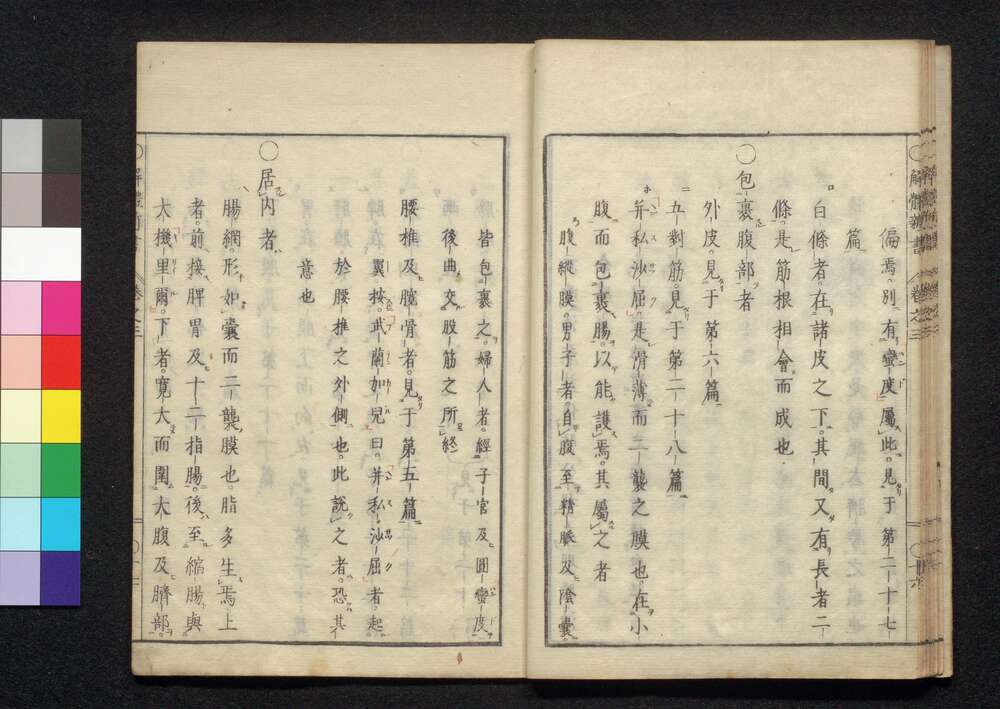 偏焉。別有蠻度屬此。見于第二十七
篇
白條者。在諸皮之下。其間又有長者二
條。是筋根相會而成也
〇包裹腹部者
外皮。見于第六篇
五對筋。見于第二十八篇
并私沙屈。是滑薄而二襲之膜也。在小
腹而包裹腸。以能護焉。其屬之者
腹縱膜。男子者。自腹至精脈及陰囊。
皆包裹之。婦人者。經子宮及圓蠻度。
後曲。交股筋之所終
腰椎及腕骨者。見于第五篇
翼按。武蘭加兒曰。并私沙屈者。起
於腰椎之外側也。此說之者。恐其
意也
〇居内者
腸網。形如囊而二襲膜也。脂多生焉上
者。前接脾胃及十二指腸。後至縮腸與
大機里爾。下者。寛大而圍大腹及臍部。
解體新書
卷之三